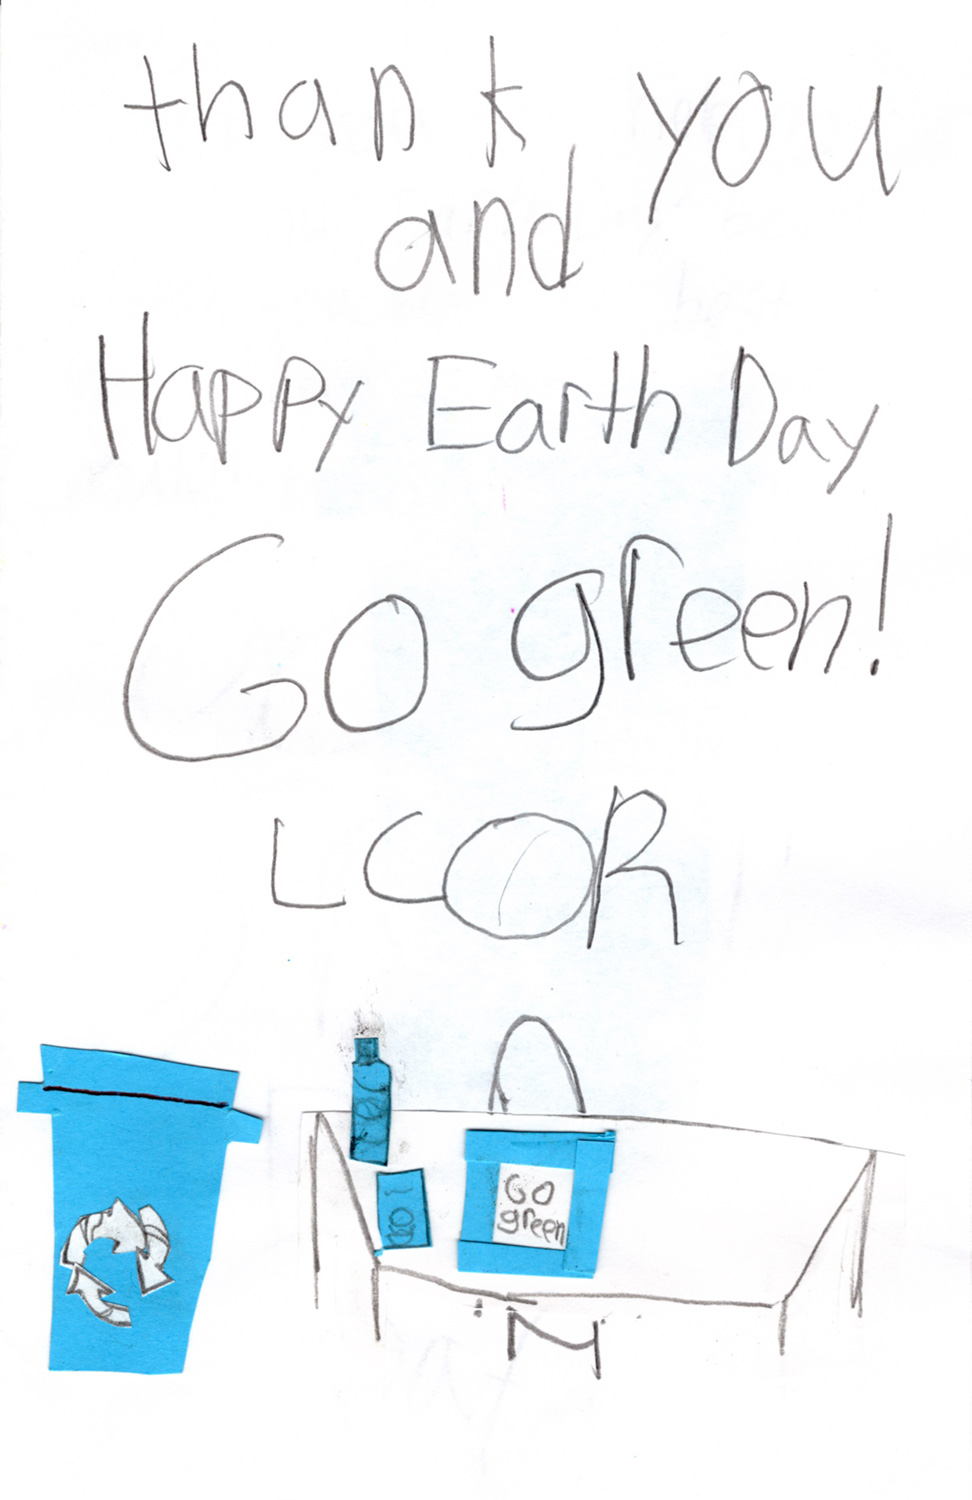 thank you
and
Happy Earth Day
Go green!
LCOR
Go
green